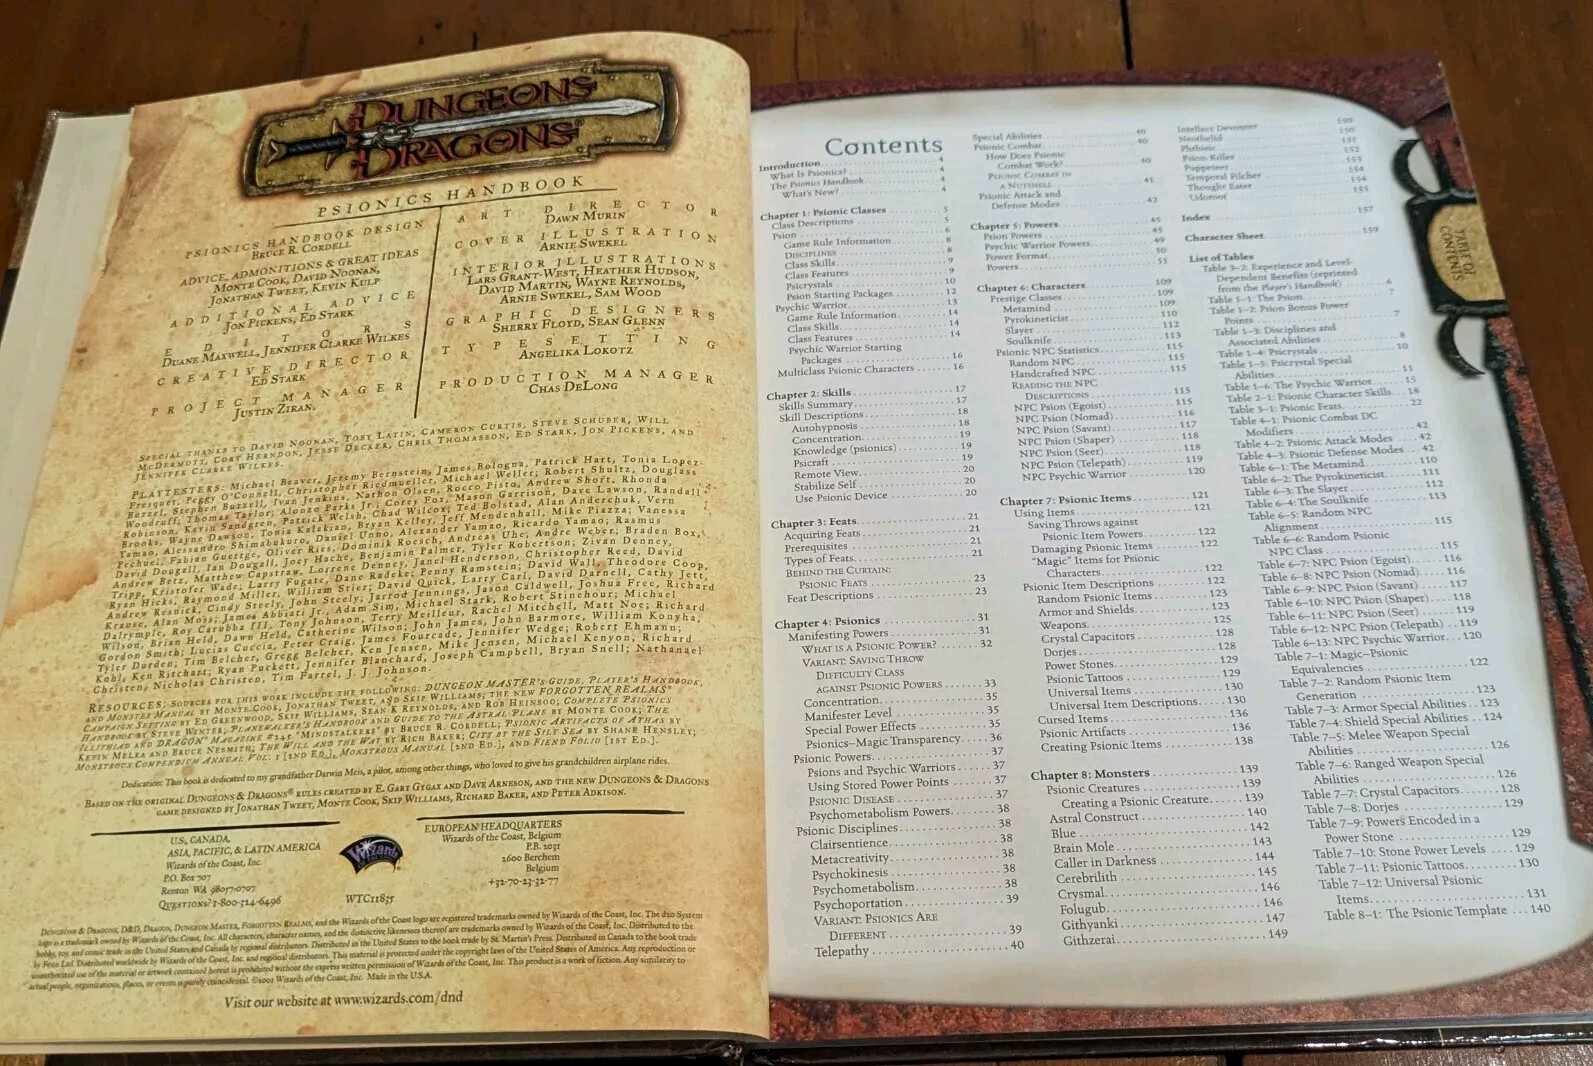 DUNGEONS
DRAGONS®
PSIONICS HANDBOOK
PSIONICS HANDBOOK DESIGN
BRUCE R. CORDELL
ADVICE, ADMONITIONS & GREAT IDEAS
MONTE COOK, DAVID NOONAN,
JONATHAN TWEET, KEVIN KULP
ADDITIONAL ADVICE
JON PICKENS, ED STARK
EDITORS
DUANE MAXWELL, JENNIFER CLARKE WILKES
CREATIVE DIRECTOR
ED STARK
PROJECT MANAGER
JUSTIN ZIRAN
ART DIRECTOR
DAWN MURIN
COVER ILLUSTRATION
ARNIE SWEKEL
INTERIOR ILLUSTRATIONS
LARS GRANT-WEST, HEATHER HUDSON,
DAVID MARTIN, WAYNE REYNOLDS,
ARNIE SWEKEL, SAM WOOD
GRAPHIC DESIGNERS
SHERRY FLOYD, SEAN GLENN
TYPESETTING
ANGELIKA LOKOTZ
PRODUCTION MANAGER
CHAS DELONG
SPECIAL THANKS TO DAVID NOONAN, TOBY LATIN, CAMERON CURTIS, STEVE SCHUBER, WILL
MCDERMOTT, CORY HERNDON, JESSE DECKER, CHRIS THOMASSON, ED STARK, JON PICKENS, AND
JENNIFER CLARKE WILKES.
PLAYTESTERS: Michael Beaver, Jeremy Bernstein, James Bologna, Patrick Hart, Tonia Lopez-
Fresquet, Peggy O'Connell, Christopher Riedmueller, Michael Weller; Robert Shultz, Douglass
Buzzel, Stephen Buzzell, Ivan Jenkins, Nathon Olsen, Rocco Pisto, Andrew Short, Rhonda
Woodruff; Thomas Taylor, Alonzo Parks Jr., Corey Fox, Mason Garrison, Dave Lawson, Randall
Robinson, Kevin Sandgren, Patrick Welsh, Chad Wilcox; Ted Bolstad, Alan Anderchuk, Vern
Brooks, Wayne Dawson, Tonia Kalakian, Bryan Kelley, Jeff Mendenhall, Mike Piazza; Vanessa
Yamao, Alessandro Shimabukuro, Daniel Unno, Alexander Yamao, Ricardo Yamao; Rasmus
Pechuel, Fabian Guettge, Oliver Ries, Dominik Roesch, Andreas Uhe; Andre Weber; Braden Box,
David Dougall, Ian Dougall, Joey Hache, Benjamin Palmer, Tyler Robertson; Zivan Denney,
Andrew Betz, Matthew Capstraw, Lorrene Denney, Janel Henderson, Christopher Reed, David
Tripp, Kristofer Wade; Larry Fugate, Dane Radeke; Penny Ramstein; David Wall, Theodore Coop,
Ryan Hicks, Raymond Miller, William Stier; David Quick, Larry Carl, David Darnell, Cathy Jett,
Andrew Resnick, Cindy Steely, John Steely; Jarrod Jennings, Jason Caldwell, Joshua Free, Richard
Krause, Alan Moss; James Abbiati Jr., Adam Sim, Michael Stark, Robert Stinehour; Michael
Dalrymple, Roy Carubba III, Tony Johnson, Terry Meilleur, Rachel Mitchell, Matt Noe; Richard
Wilson, Brian Held, Dawn Held, Catherine Wilson; John James, John Barmore, William Konyha,
Gordon Smith; Lucias Cuccia, Peter Craig, James Fourcade, Jennifer Wedge; Robert Ehmann;
Tyler Durden; Tim Belcher, Gregg Belcher, Ken Jensen, Mike Jensen, Michael Kenyon, Richard
Kohl, Ken Ritchart; Ryan Puckett, Jennifer Blanchard, Joseph Campbell, Bryan Snell; Nathanael
Christen, Nicholas Christen, Tim Farrel, J. J. Johnson.
RESOURCES: SOURCES FOR THIS WORK INCLUDE THE FOLLOWING: DUNGEON MASTER'S GUIDE, PLAYER'S HANDBOOK,
AND MONSTER MANUAL BY MONTE COOK, JONATHAN TWEET, AND SKIP WILLIAMS; THE NEW FORGOTTEN REALMS®
CAMPAIGN SETTING BY ED GREENWOOD, SKIP WILLIAMS, SEAN K REYNOLDS, AND ROB HEINSOO; COMPLETE PSIONICS
HANDBOOK BY STEVE WINTER; PLANEWALKER'S HANDBOOK AND GUIDE TO THE ASTRAL PLANE BY MONTE COOK; THE
ILLITHIAD AND DRAGON® MAGAZINE #245 "MINDSTALKERS" BY BRUCE R. CORDELL; PSIONIC ARTIFACTS OF ATHAS BY
KEVIN MELKA AND BRUCE NESMITH; THE WILL AND THE WAY BY RICH BAKER; CITY BY THE SILT SEA BY SHANE HENSLEY;
MONSTROUS COMPENDIUM ANNUAL VOL. 1 [2ND ED.], MONSTROUS MANUAL [2ND ED.], AND FIEND FOLIO [1ST ED.].
Dedication: This book is dedicated to my grandfather Darwin Meis, a pilot, among other things, who loved to give his grandchildren airplane rides.
BASED ON THE ORIGINAL DUNGEONS & DRAGONS® RULES CREATED BY E. GARY GYGAX AND DAVE ARNESON, AND THE NEW DUNGEONS & DRAGONS
GAME DESIGNED BY JONATHAN TWEET, MONTE COOK, SKIP WILLIAMS, RICHARD BAKER, AND PETER ADKISON.
U.S., CANADA,
ASIA, PACIFIC, & LATIN AMERICA
Wizards of the Coast, Inc.
P.O. Box 707
Renton WA 98057-0707
QUESTIONS? 1-800-324-6496
Wizards
OF THE COAST
WTC11835
EUROPEAN HEADQUARTERS
Wizards of the Coast, Belgium
P.B. 2031
2600 Berchem
Belgium
+32-70-23-32-77
DUNGEONS & DRAGONS, D&D, DRAGON, DUNGEON MASTER, FORGOTTEN REALMS, and the Wizards of the Coast logo are registered trademarks owned by Wizards of the Coast, Inc. The d20 System
logo is a trademark owned by Wizards of the Coast, Inc. All characters, character names, and the distinctive likenesses thereof are trademarks owned by Wizards of the Coast, Inc. Distributed to the
hobby, toy, and comic trade in the United States and Canada by regional distributors. Distributed in the United States to the book trade by St. Martin's Press. Distributed in Canada to the book trade
by Fenn Ltd. Distributed worldwide by Wizards of the Coast, Inc. and regional distributors. This material is protected under the copyright laws of the United States of America. Any reproduction or
unauthorized use of the material or artwork contained herein is prohibited without the express written permission of Wizards of the Coast, Inc. This product is a work of fiction. Any similarity to
actual people, organizations, places, or events is purely coincidental. ©2001 Wizards of the Coast, Inc. Made in the U.S.A.
Visit our website at www.wizards.com/dnd
Contents
Introduction 4
What Is Psionics? 4
The Psionics Handbook 4
What's New? 4
Chapter 1: Psionic Classes 5
Class Descriptions 5
Psion 6
Game Rule Information 8
DISCIPLINES 8
Class Skills 9
Class Features 9
Psicrystals 10
Psion Starting Packages 12
Psychic Warrior 13
Game Rule Information 14
Class Skills 14
Class Features 14
Psychic Warrior Starting
Packages 16
Multiclass Psionic Characters 16
Chapter 2: Skills 17
Skills Summary 17
Skill Descriptions 18
Autohypnosis 18
Concentration 19
Knowledge (psionics) 19
Psicraft 19
Remote View 20
Stabilize Self 20
Use Psionic Device 20
Chapter 3: Feats 21
Acquiring Feats 21
Prerequisites 21
Types of Feats 21
BEHIND THE CURTAIN:
PSIONIC FEATS 23
Feat Descriptions 23
Chapter 4: Psionics 31
Manifesting Powers 31
WHAT IS A PSIONIC POWER? 32
VARIANT: SAVING THROW
DIFFICULTY CLASS
AGAINST PSIONIC POWERS 33
Concentration 35
Manifester Level 35
Special Power Effects 35
Psionics–Magic Transparency 36
Psionic Powers 37
Psions and Psychic Warriors 37
Using Stored Power Points 37
PSIONIC DISEASE 37
Psychometabolism Powers 38
Psionic Disciplines 38
Clairsentience 38
Metacreativity 38
Psychokinesis 38
Psychometabolism 38
Psychoportation 39
VARIANT: PSIONICS ARE
DIFFERENT 39
Telepathy 40
Special Abilities 40
Psionic Combat 40
How Does Psionic
Combat Work? 40
PSIONIC COMBAT IN
A NUTSHELL 41
Psionic Attack and
Defense Modes 42
Chapter 5: Powers 45
Psion Powers 45
Psychic Warrior Powers 49
Power Format 50
Powers 51
Chapter 6: Characters 109
Prestige Classes 109
Metamind 109
Pyrokineticist 110
Slayer 112
Soulknife 113
Psionic NPC Statistics 115
Random NPC 115
Handcrafted NPC 115
READING THE NPC
DESCRIPTIONS 115
NPC Psion (Egoist) 115
NPC Psion (Nomad) 116
NPC Psion (Savant) 117
NPC Psion (Shaper) 118
NPC Psion (Seer) 118
NPC Psion (Telepath) 119
NPC Psychic Warrior 120
Chapter 7: Psionic Items 121
Using Items 121
Saving Throws against
Psionic Item Powers 122
Damaging Psionic Items 122
"Magic" Items for Psionic
Characters 122
Psionic Item Descriptions 122
Random Psionic Items 123
Armor and Shields 123
Weapons 125
Crystal Capacitors 128
Dorjes 128
Power Stones 129
Psionic Tattoos 129
Universal Items 130
Universal Item Descriptions 130
Cursed Items 136
Psionic Artifacts 136
Creating Psionic Items 138
Chapter 8: Monsters 139
Psionic Creatures 139
Creating a Psionic Creature 139
Astral Construct 140
Blue 142
Brain Mole 143
Caller in Darkness 144
Cerebrilith 145
Crysmal 146
Folugub 146
Githyanki 147
Githzerai 149
Intellect Devourer 150
Neothelid 150
Phthisic 151
Psion-Killer 152
Puppeteer 153
Temporal Filcher 154
Thought Eater 154
Udoroot 155
Index 157
Character Sheet 159
List of Tables
Table 3–2: Experience and Level-
Dependent Benefits (reprinted
from the Player's Handbook) 6
Table 1–1: The Psion 7
Table 1–2: Psion Bonus Power
Points 7
Table 1–3: Disciplines and
Associated Abilities 8
Table 1–4: Psicrystals 10
Table 1–5: Psicrystal Special
Abilities 11
Table 1–6: The Psychic Warrior 15
Table 2–1: Psionic Character Skills 18
Table 3–1: Psionic Feats 22
Table 4–1: Psionic Combat DC
Modifiers 42
Table 4–2: Psionic Attack Modes 42
Table 4–3: Psionic Defense Modes 42
Table 6–1: The Metamind 110
Table 6–2: The Pyrokineticist 111
Table 6–3: The Slayer 112
Table 6–4: The Soulknife 113
Table 6–5: Random NPC
Alignment 115
Table 6–6: Random Psionic
NPC Class 115
Table 6–7: NPC Psion (Egoist) 116
Table 6–8: NPC Psion (Nomad) 116
Table 6–9: NPC Psion (Savant) 117
Table 6–10: NPC Psion (Shaper) 118
Table 6–11: NPC Psion (Seer) 119
Table 6–12: NPC Psion (Telepath) 119
Table 6–13: NPC Psychic Warrior 120
Table 7–1: Magic–Psionic
Equivalencies 122
Table 7–2: Random Psionic Item
Generation 123
Table 7–3: Armor Special Abilities 123
Table 7–4: Shield Special Abilities 124
Table 7–5: Melee Weapon Special
Abilities 126
Table 7–6: Ranged Weapon Special
Abilities 126
Table 7–7: Crystal Capacitors 128
Table 7–8: Dorjes 129
Table 7–9: Powers Encoded in a
Power Stone 129
Table 7–10: Stone Power Levels 129
Table 7–11: Psionic Tattoos 130
Table 7–12: Universal Psionic
Items 131
Table 8–1: The Psionic Template 140
TABLE OF
CONTENTS